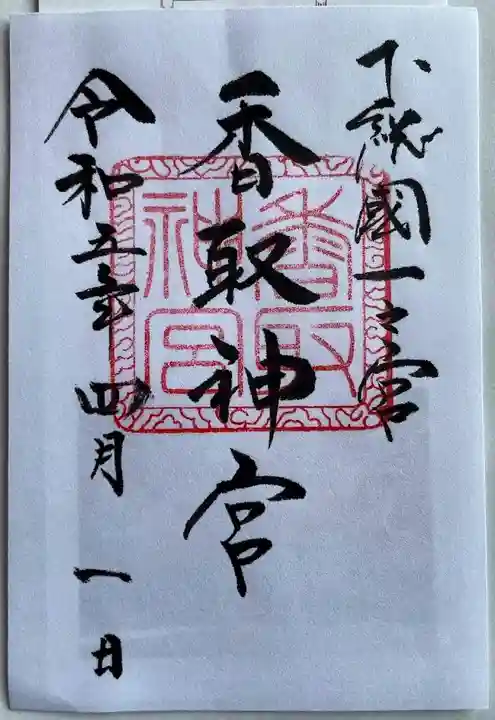 下総國一之宮
香取神宮
香取神宮
令和五年四月一日